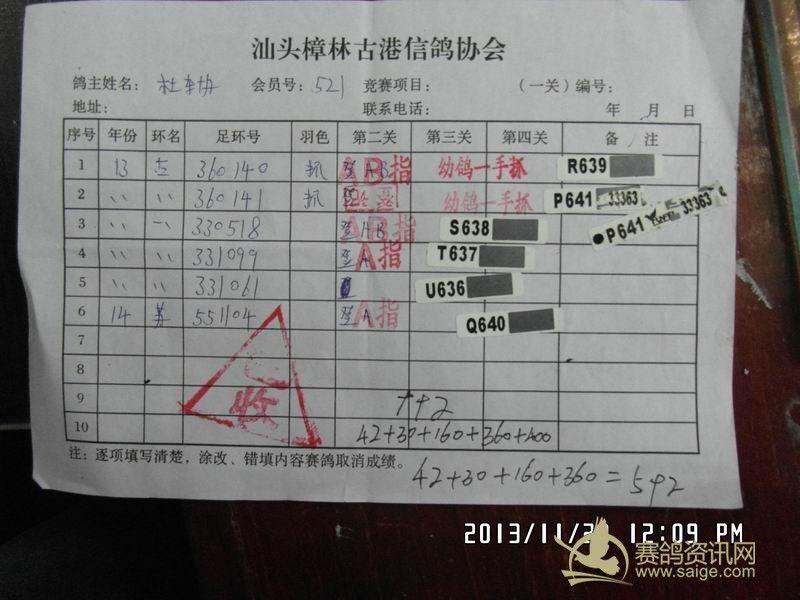 汕头樟林古港信鸽协会
鸽主姓名: 会员号: 521 竞赛项目: (一关)编号:
地址: 联系电话: 年 月 日
序号 年份 环名 足环号 羽色 第二关 第三关 第四关 备 注
1 13 360140 抓 AB指 幼鸽一手抓 R639
2 〃 〃 360141 抓 幼鸽一手抓 P641 33363
P641 33363
3 〃 〃 330518 AB指 S638
4 〃 〃 331099 A指 T637
5 〃 〃 331061 U636
6 14 苏 551104 A指 Q640
7
8
9 1+2
10 42+30+160+360+400
已收
注: 逐项填写清楚,涂改、错填内容赛鸽取消成绩。
42+30+160+360=592
2013/11/2 12:09 PM
赛鸽资讯网
www.saige.com